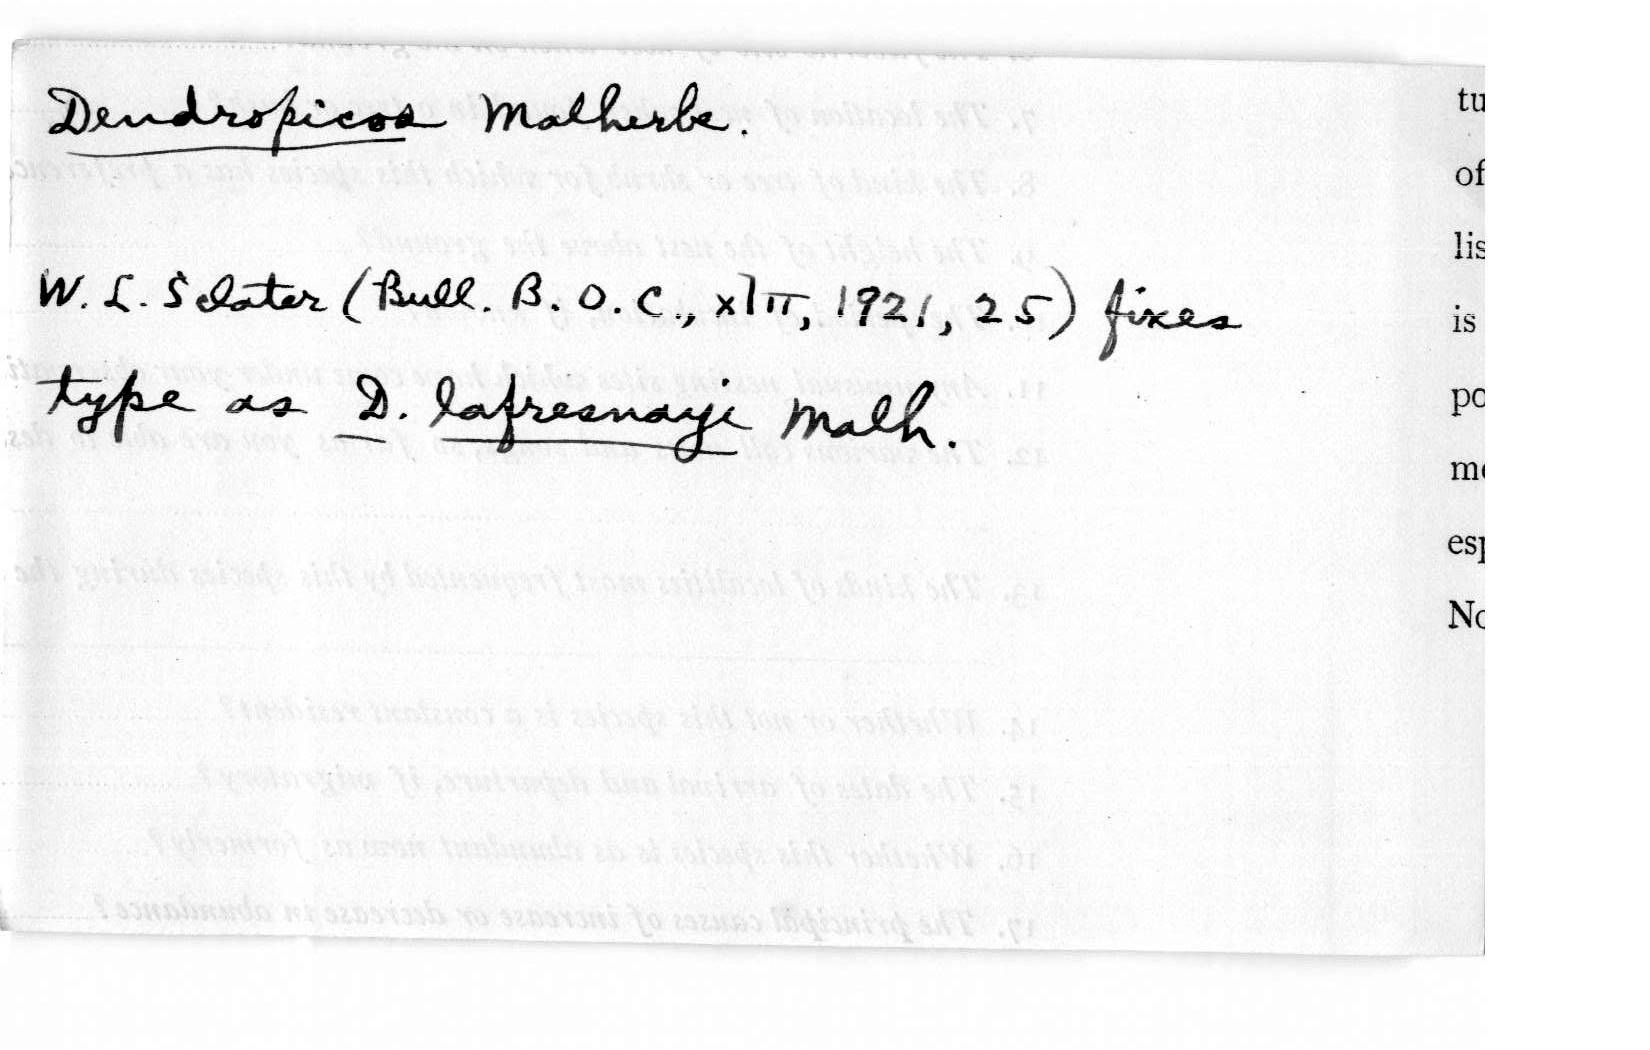 Dendropicos Malherbe.
W. L. Sclater (Bull. B.O.C., xlii, 1921, 25) fixes
type as D. lafresnayi Malh.
tu
of
lis
is
po
esp
No